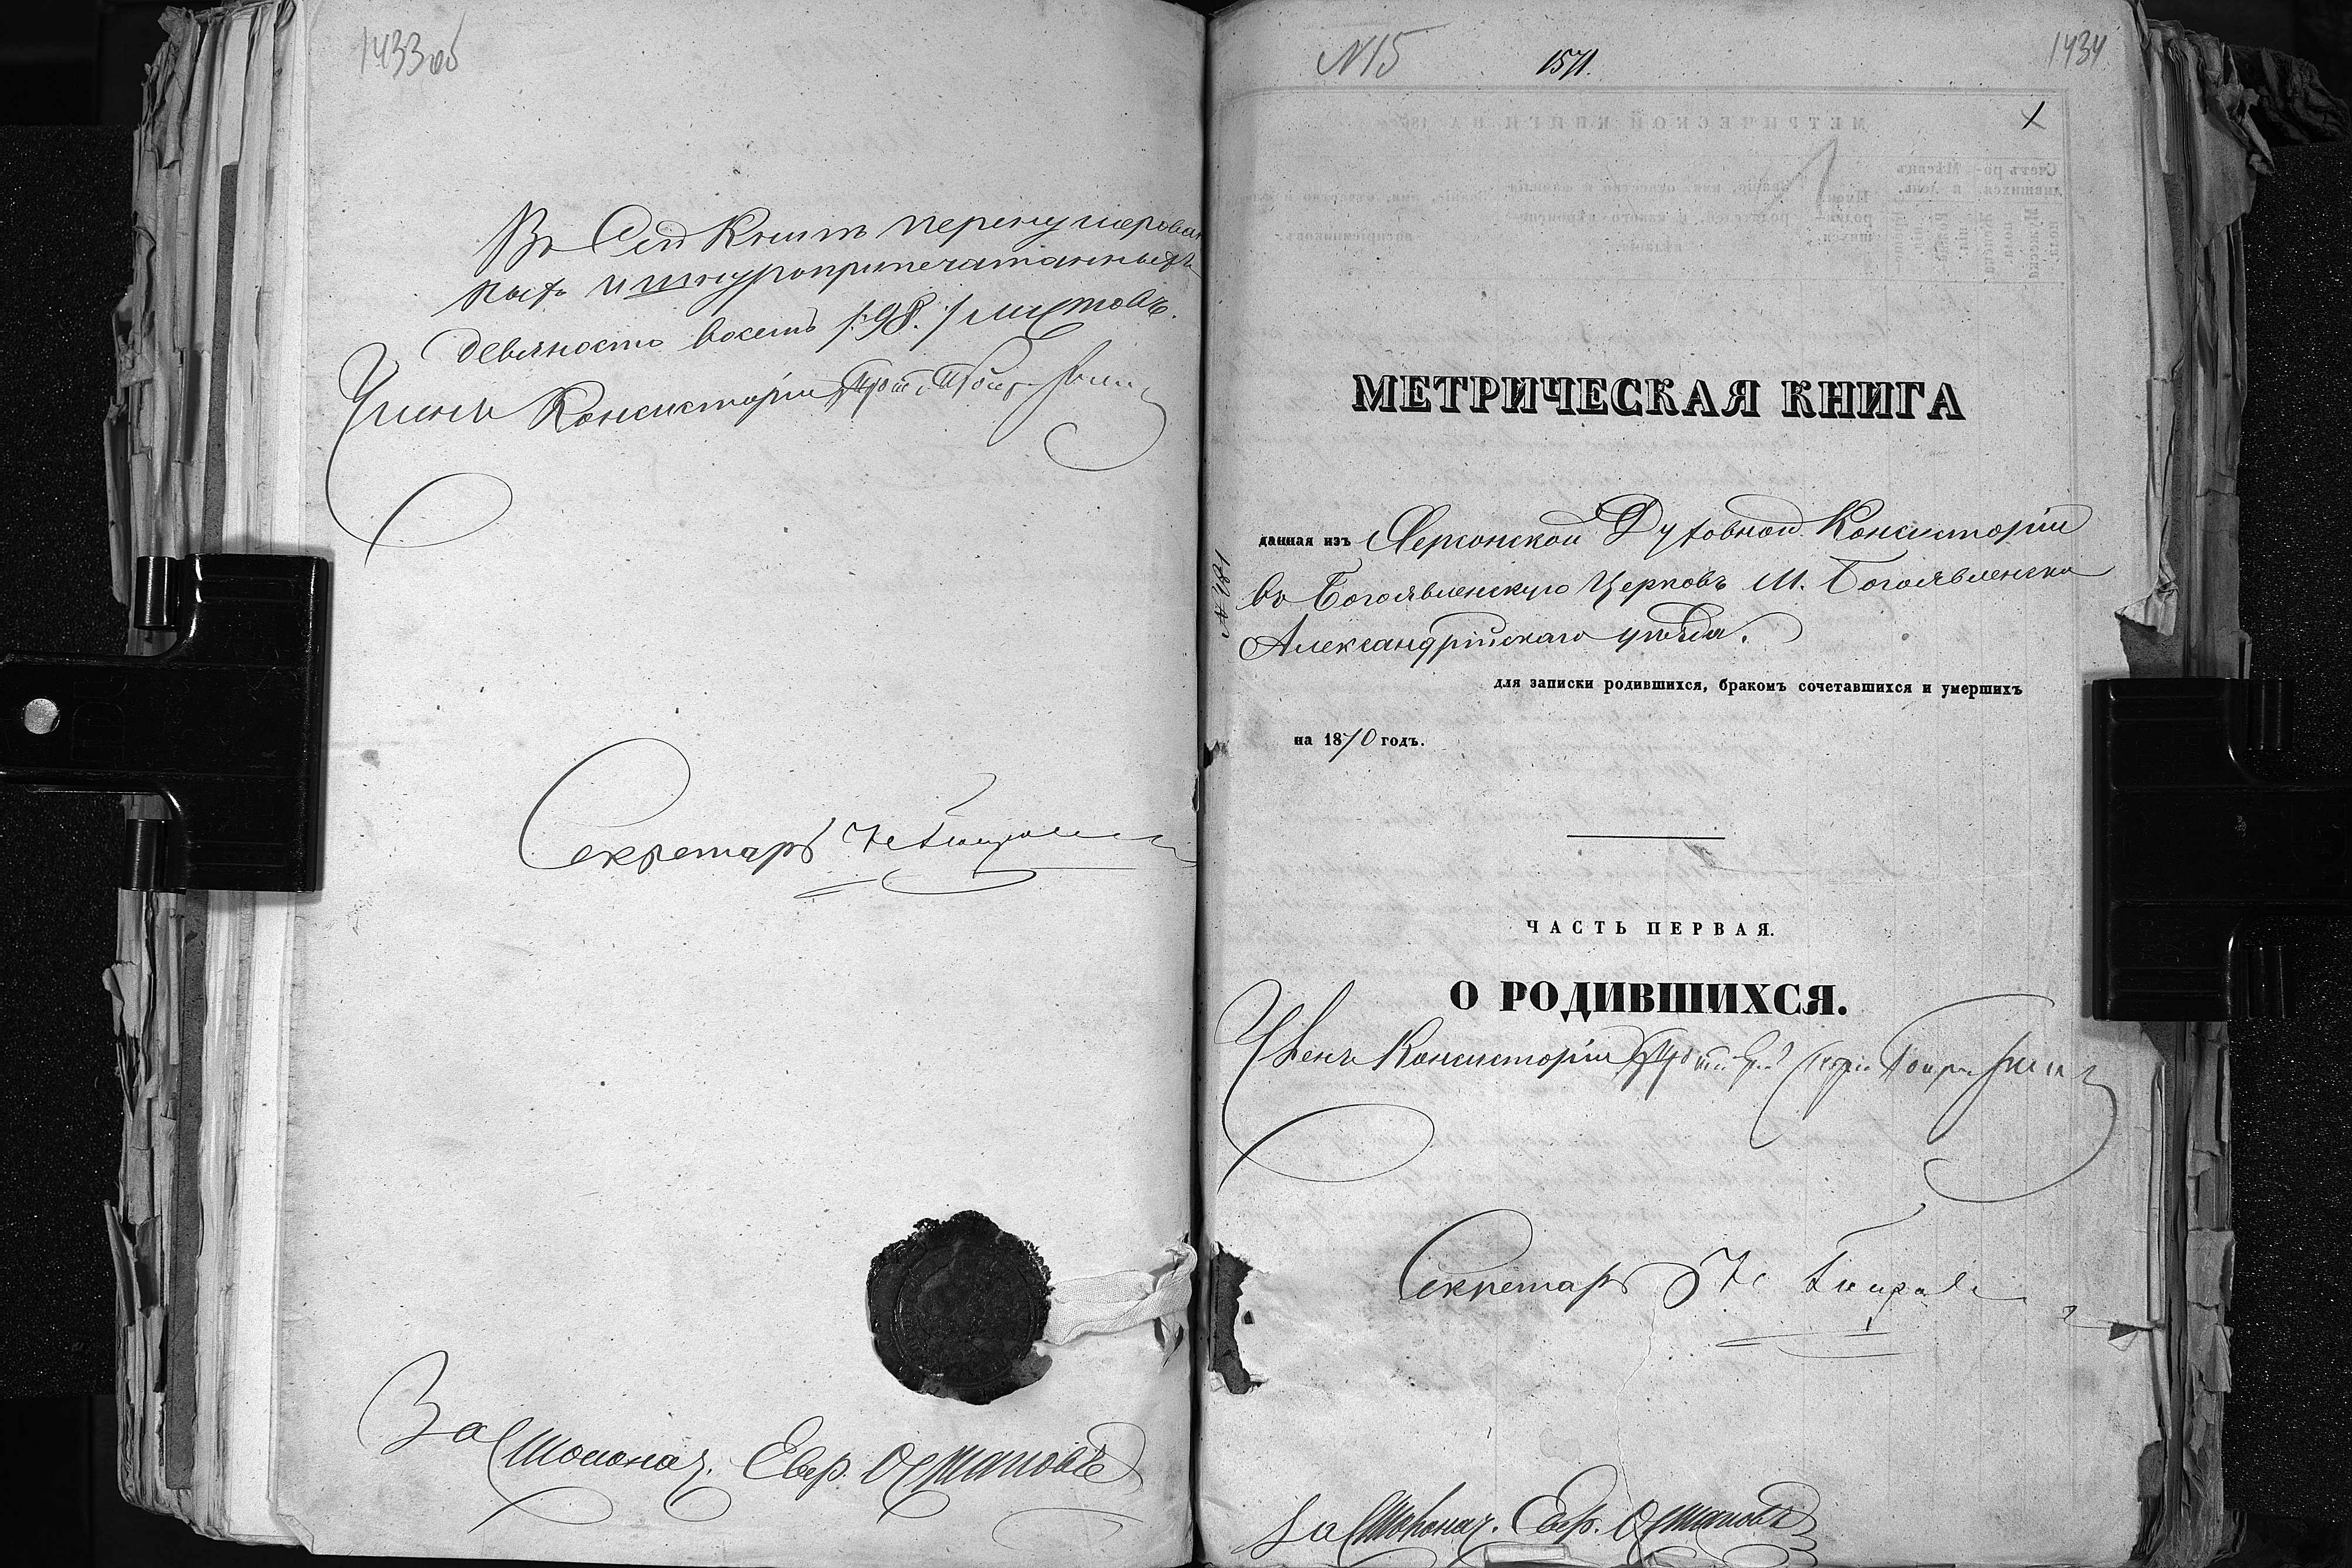 1433об
Въ Сей Книгѣ перенумерован
ныхъ и шнуроприпечатанныхъ
девяносто восемь /:98:/ листовъ.
Членъ Консисторіи
Секретарь
За Столонач. Евгр. Остаповъ
N15
1571.
1434
МЕТРИЧЕСКАЯ КНИГА
данная изъ Херсонской Духовной Консисторіи
въ Богоявленскую Церковь М. Богоявленска
Александрійскаго уѣзда.
для записки родившихся, бракомъ сочетавшихся и умершихъ
на 1870 годъ.
ЧАСТЬ ПЕРВАЯ.
О РОДИВШИХСЯ.
Членъ Консисторіи
Секретарь
За Столонач. Евгр. Остаповъ